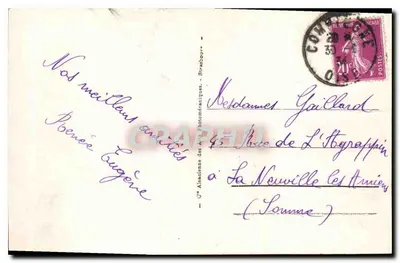 Nos meilleures amitiés
Renée Eugène
Cie Alsacienne des Arts Photomécaniques. - Strasbourg
COMPIEGNE
OISE
20c
POSTES
CPAPHIL
Mesdames Gaillard
45 Rue de L'Agrappin
à La Neuville les Amiens
(Somme)